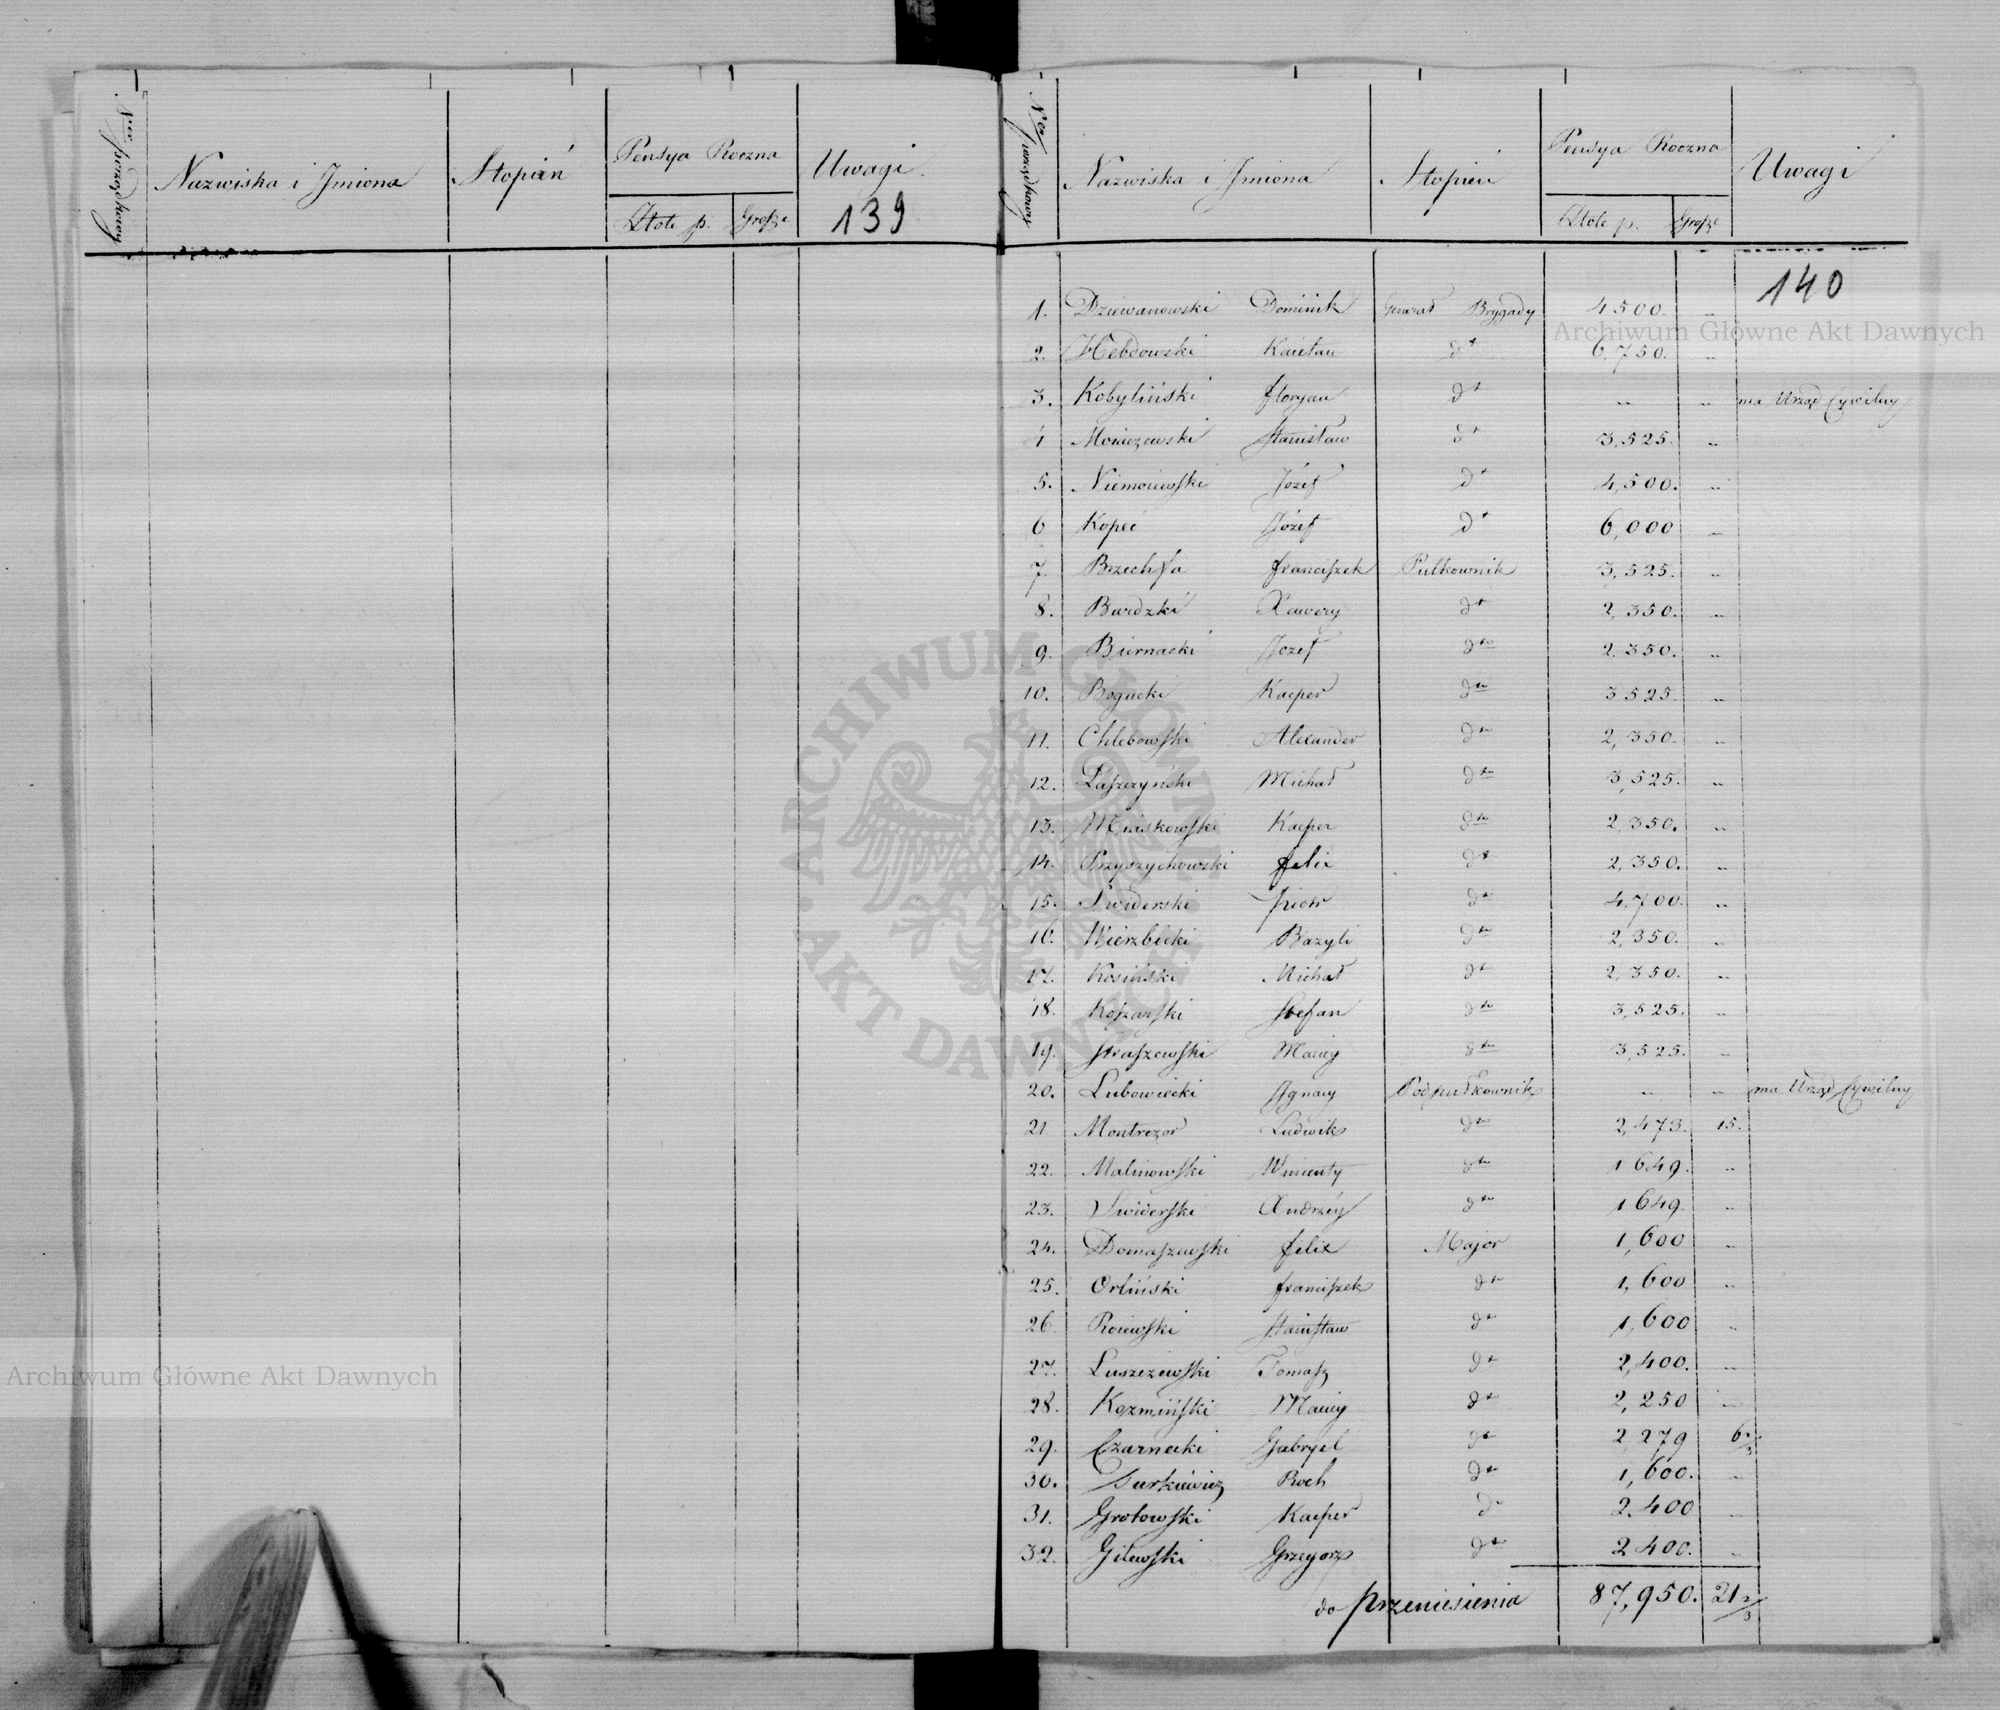 Ner porządkowy
Nazwiska i Jmiona
Stopień
Pensya Roczna
Złote p.
Grosze
Uwagi.
139
Ner porządkowy
Nazwiska i Jmiona
Stopień
Pensya Roczna
Złote p.
Grosze
Uwagi
140
1. Dziewanowski Dominik Generał Brygady 4500. "
2. Hebdowski Kaietan dto 6,750. "
3. Kobyliński floryan dto " " ma Urząd Cywilny
4 Stanisław dto 3,525. "
5. Niemoiewski Józef dto 4,500. "
6 Kopeć Józef dto 6,000 "
7. Brzechfa franciszek Pułkownik 3,525. "
8. Burdzki Xawery dto 2,350. "
9. Biernacki Jozef dto 2.350. "
10. Bogucki Kacper dto 3525. "
11. Chlebowski Alexander dto 2,350. "
12. Laszczyński Michał dto 3,525. "
13. Miaskowski Kacper dto 2,350. "
14. Przyszychowski felix dto 2,350. "
15. Swiderski Piotr dto 4,700. "
16. Wierzbicki Bazyli dto 2,350. "
17. Kosiński Michał dto 2,350. "
18. Stefan dto 3,525. "
19. Straszewski Maciey dto 3,525. "
20. Lubowiecki Jgnacy Podpułkownik " " ma Urząd Cywilny
21 Montrezor Ludwik dto 2,473. 15.
22. Malinowski Wincenty dto 1649. "
23. Swiderski Andrzéy dto 1649. "
24. Domaszewski felix Major 1,600 "
25. Orliński franciszek dto 1,600 "
26. Stanisław dto 1,600 "
27. Luszczewski Tomasz dto 2,400. "
28. Kozmiński Maciey dto 2,250 "
29. Czarnecki Gabryel dto 2,279 6 2/3
30. Roch dto 1,600. "
31. Grotowski Kacper dto 2.400 "
32. Gilewski Grzegorz dto 2400. "
do przeniesienia 87,950. 21 2/3
Archiwum Główne Akt Dawnych
Archiwum Główne Akt Dawnych
ARCHIWUM GŁÓWNE AKT DAWNYCH